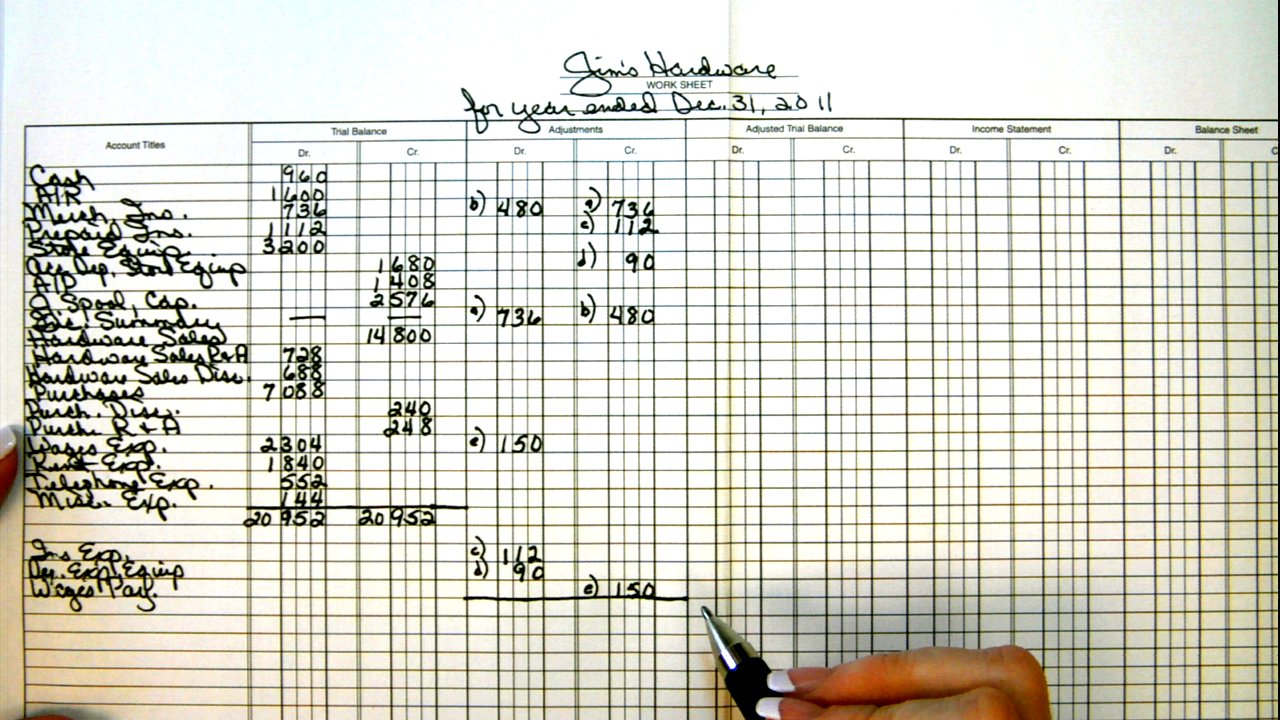 Jim's Hardware
WORK SHEET
for year ended Dec. 31, 2011
Account Titles Trial Balance Adjustments Adjusted Trial Balance Income Statement Balance Sheet
Dr. Cr. Dr. Cr. Dr. Cr. Dr. Cr. Dr. C
Cash 960
A/R 1600
Merch. Inv. 736 b) 480 a) 736
Prepaid Ins. 1112 c) 112
Store Equip. 3200
Acc. Dep. Store Equip 1680 d) 90
A/P 1408
J. Spool, Cap. 2576
Inc. Summary — — a) 736 b) 480
Hardware Sales 14800
Hardware Sales R&A 728
Hardware Sales Disc. 688
Purchases 7088
Purch. Disc. 240
Purch. R&A 248
Wages Exp. 2304 e) 150
Rent Exp. 1840
Telephone Exp. 552
Misc. Exp. 144
20952 20952
Ins Exp. c) 112
Dep. Exp. Equip d) 90
Wages Pay. e) 150